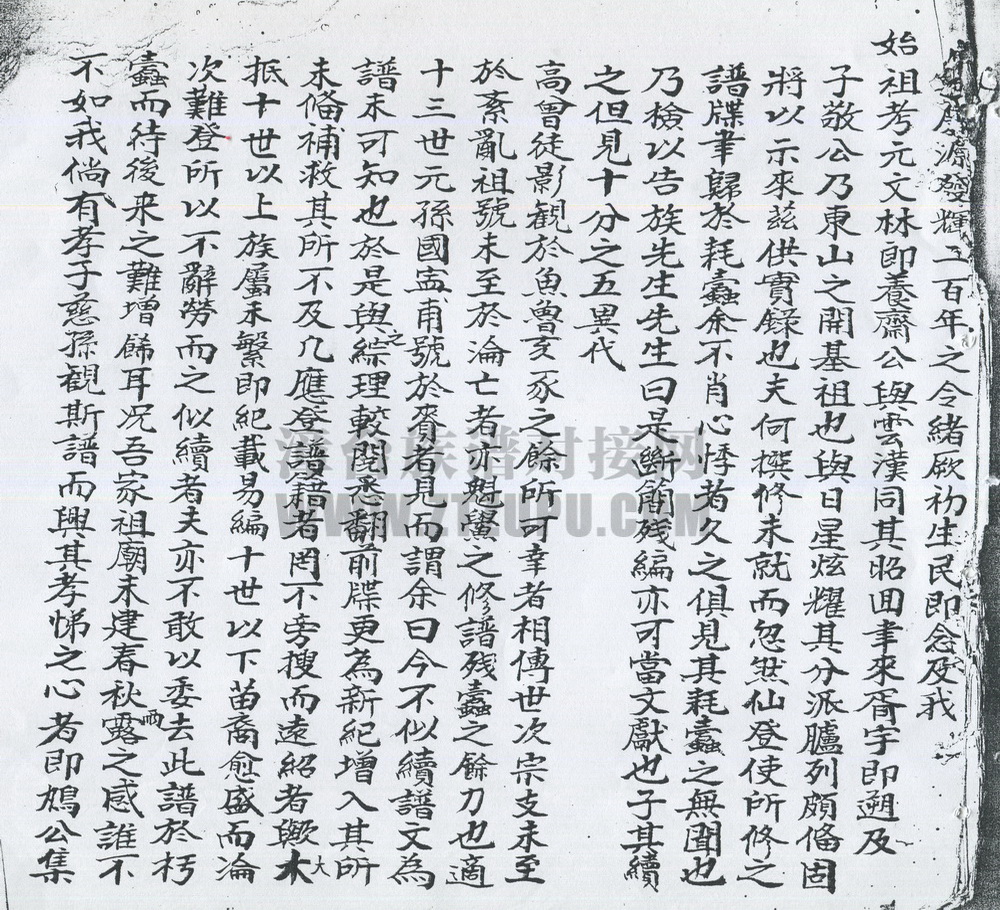 慶源發輝二百年之令緒厥初生民即念及我
始祖考元文林即養齋公與雲漢同其昭回聿來胥宇即遡及
子敬公乃東山之開基祖也與日星炫耀其分派臚列頗俻固
將以示來茲供實錄也夫何撰修未就而忽然仙登使所修之
譜牒聿歸於耗蠹余不肖心悸者久之俱見其耗蠹之無聞也
乃檢以告族先生先生曰是斷簡残編亦可當文獻也子其續
之但見十分之五異代
高曾徒影観於魚魯亥豕之餘所可幸者相傳世次宗支未至
於紊亂祖號未至於淪亡者亦魁黌之修譜残蠹之餘力也適
十三世元孫國盂甫號於賚者見而謂余曰今不似續譜文為
譜未可知也於是與之綜理較閱悉翻前牒更為新紀增入其所
未俻補救其所不及凢應登譜籍者罔不旁搜而遠紹者歟大
抵十世以上族属未繁即紀載易編十世以下苗裔愈盛而淪
次難登所以不辭勞而之似續者夫亦不敢以委去此譜於朽
蠹而待後来之難增餙耳况吾家祖廟未建春秋霜露之感誰不
不如我倘有孝子慈孫観斯譜而興其孝悌之心者即鳩公集
澤台族谱对接网
WWW.ZTZUPU.COM